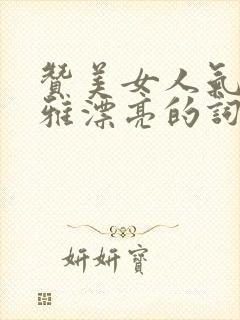 赞美女人氣
雅漂亮的詞
妍妍寶